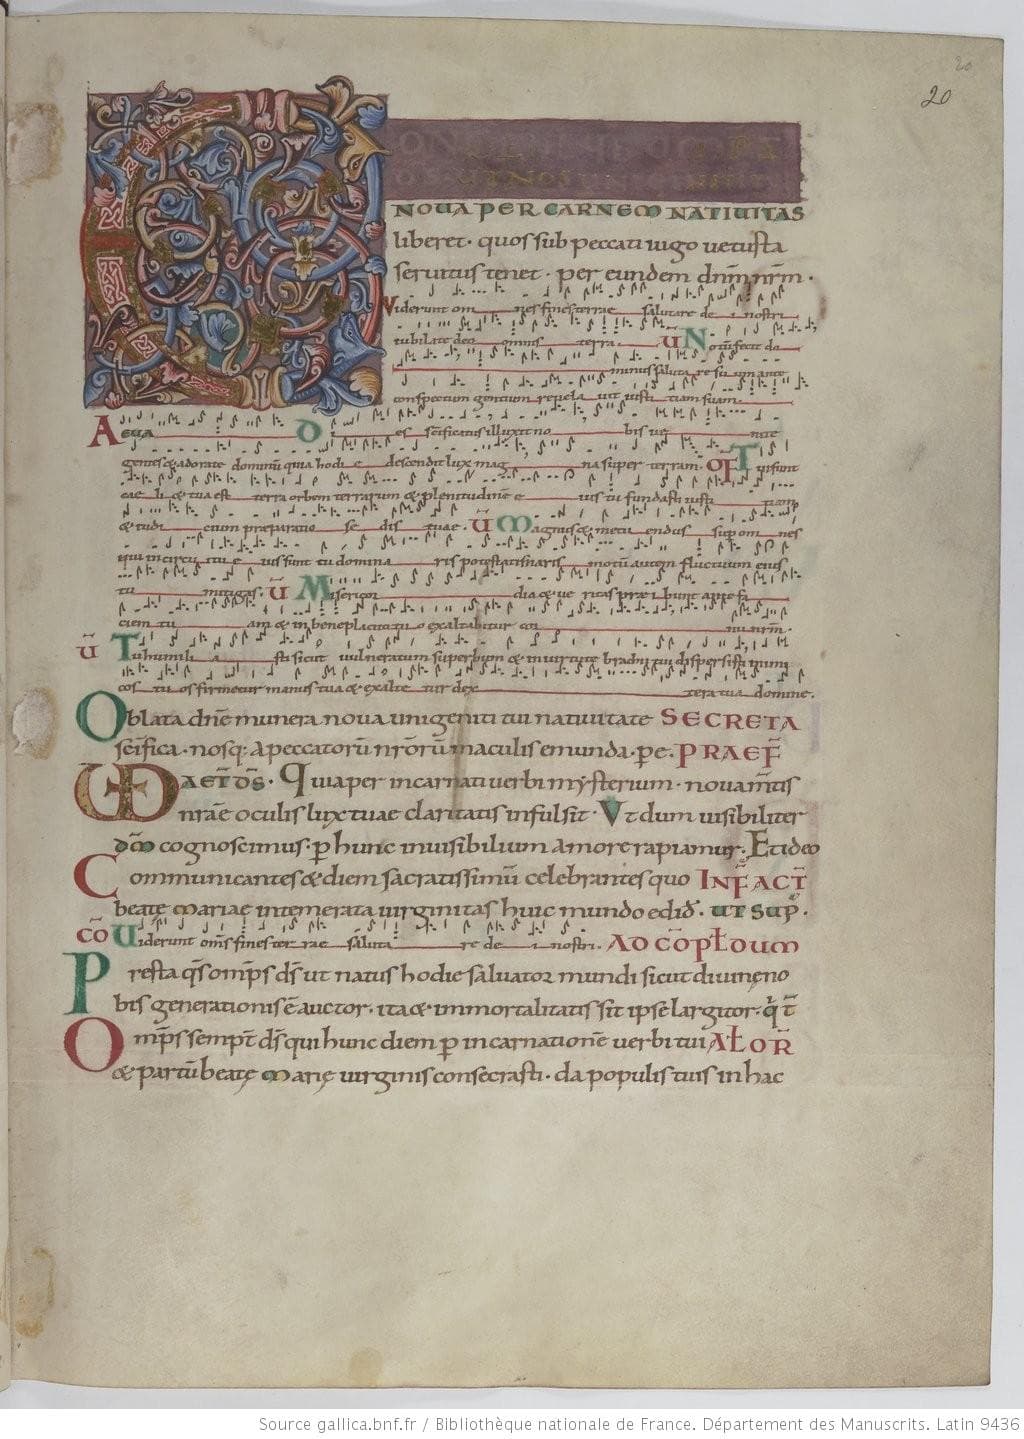 20
20
NOVA PER CARNEM NATIVITAS
liberet · quos sub peccati iugo uetusta
seruitus tenet · per eundem dnm nrm ·
Viderunt om nes fines terrae salutare de i nostri
iubilate deo omnis terra · V̄ Notū fecit do
minus saluta re suum ante
conspectum gentium reuela uit iusti tiam suam ·
AEVIA DI es scificatus illuxit no bis ue nite
gentes & adorate dominū quia hodi e descendit lux mag na super terram · OF Tui sunt
cae li & tua est terra orbem terrarum & plenitudinē e ius tu fundasti iusti tiam
& iudi cium praeparatio se dis tuae · V̄ Magnus & metu endus sup om nes
qui in circu itu e ius sunt tu domina ris potestati maris motū autem fluctuum eius
tu mitigas · V̄ Misericor dia & ue ritas prae ibunt ante fa
ciem tu am & in beneplacito tuo exaltabitur cor nu nrm ·
V̄ Tu humili a sti sicut uulneratum superbum & in uirtute brachii tui dispersisti inimi
cos tuos firmetur manus tua & exalte tur dex tera tua domine ·
Oblata dne munera noua unigeniti tui natiuitate SECRETA
scifica · nosq: a peccatorū nrorū maculis emunda · pe · PRAEF
VD AET DS · Quia per incarnati uerbi mysterium · noua mtis
nrae oculis lux tuae claritatis infulsit · Vt dum uisibiliter
dm cognoscimus · p hunc inuisibilium amore rapiamur · Et ideo
Communicantes & diem sacratissimū celebrantes quo INF ACT
beate Mariae intemerata uirginitas huic mundo edid · UT SUP ·
CŌ Viderunt oms fines ter rae saluta re de i nostri · AD CŌPLDUM
Presta qs omps ds ut natus hodie saluator mundi sicut diuinę no
bis generationis ē auctor · ita & immortalitatis sit ipse largitor · q t
Omps sempt ds qui hunc diem p incarnationē uerbi tui AL OR
& partū beatę Marię uirginis consecrasti · da populis tuis in hac
Source gallica.bnf.fr / Bibliothèque nationale de France. Département des Manuscrits. Latin 9436